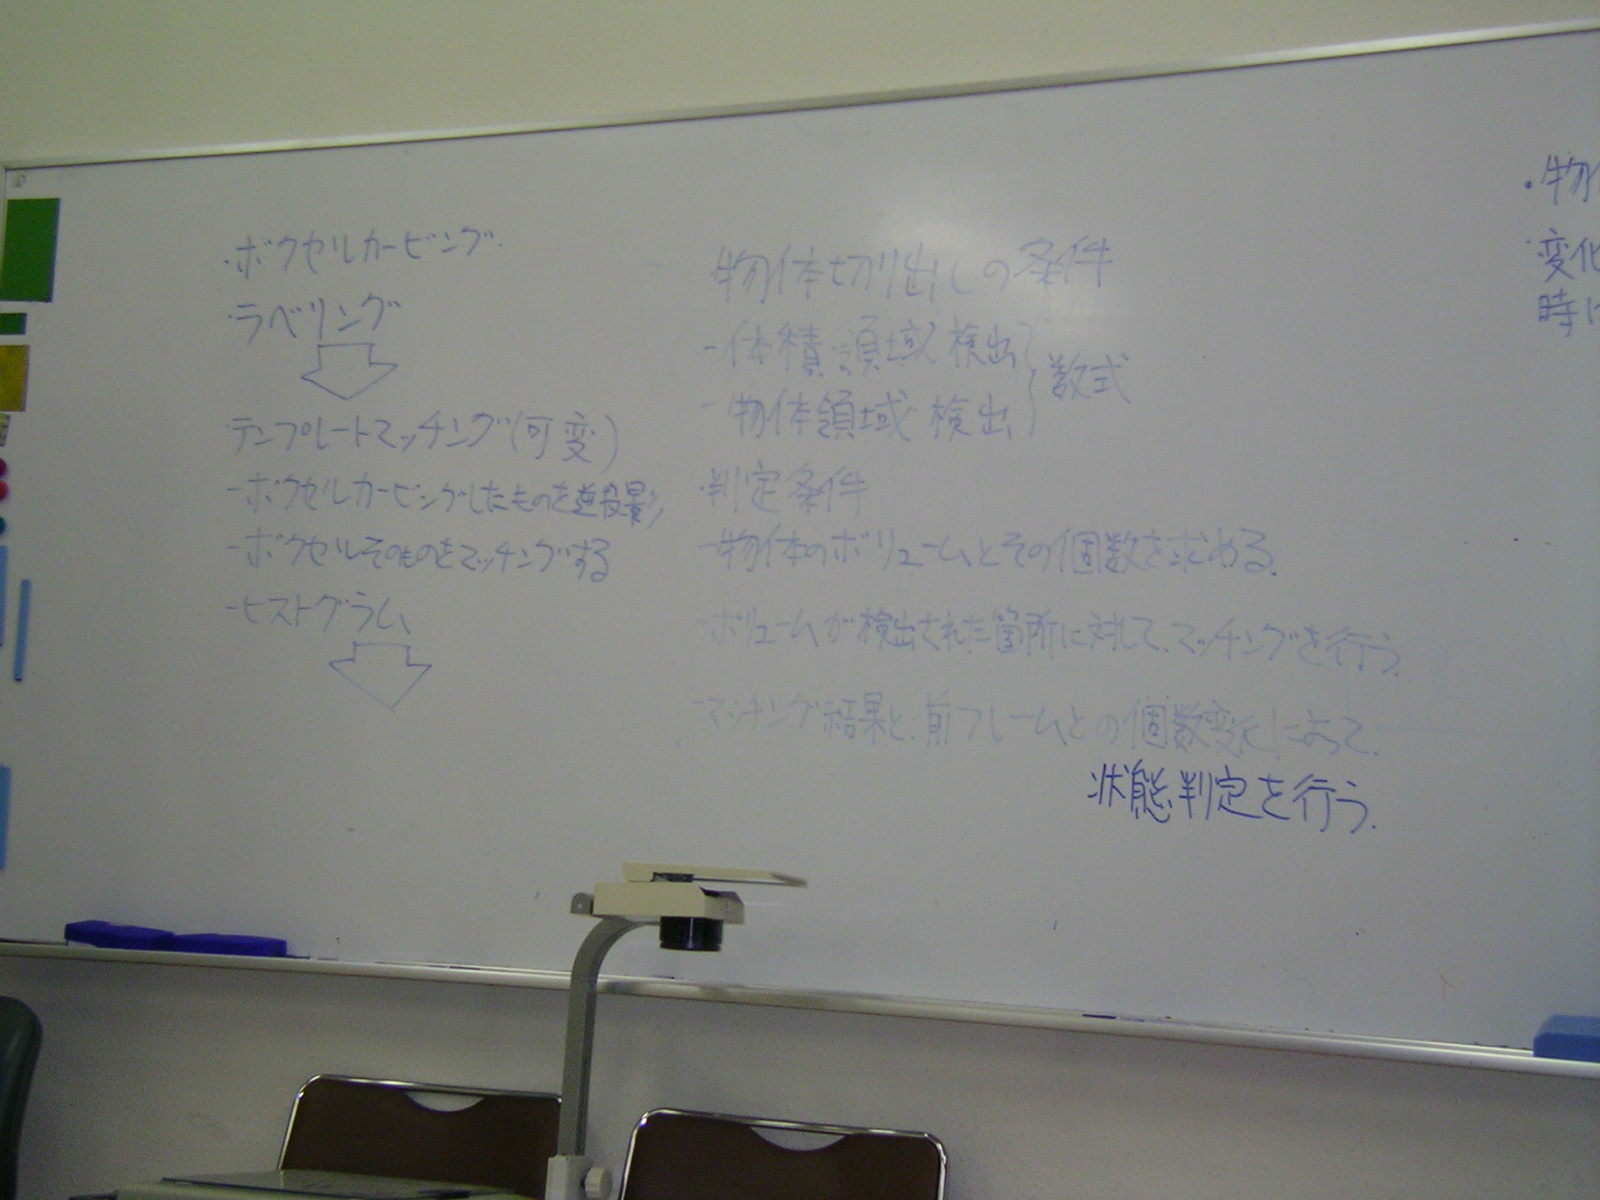 ・ボクセルカービング
・ラベリング
・テンプレートマッチング(可変)
-ボクセルカービングしたものを逆投影
-ボクセルそのものをマッチングする
-ヒストグラム
・物体切り出しの条件
-体積領域検出
-物体領域検出
数式
・判定条件
-物体のボリュームとその個数を求める.
-ボリュームが検出された箇所に対して、マッチングを行う
-マッチング結果と、前フレームとの個数変化によって、
状態判定を行う.
・物
・変化
時に